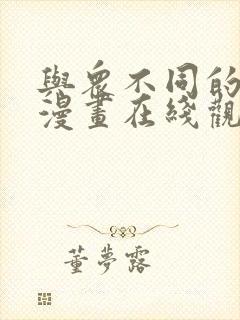 與衆不同的
漫畫在綫觀
董夢露